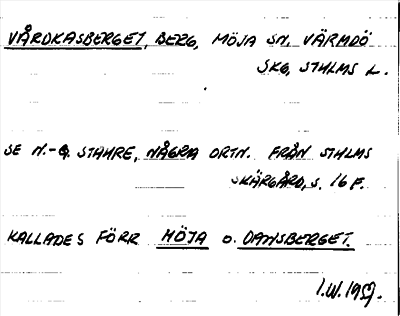 VÅRDKASBERGET, BERG, MÖJA SN, VÄRMDÖ
SKG, STHLMS L.
SE N.-G. STAHRE, NÅGRA ORTN. FRÅN STHLMS
SKÄRGÅRD, S. 16 F.
KALLADES FÖRR MÖJA O. DANSBERGET.
I.W. 1959.